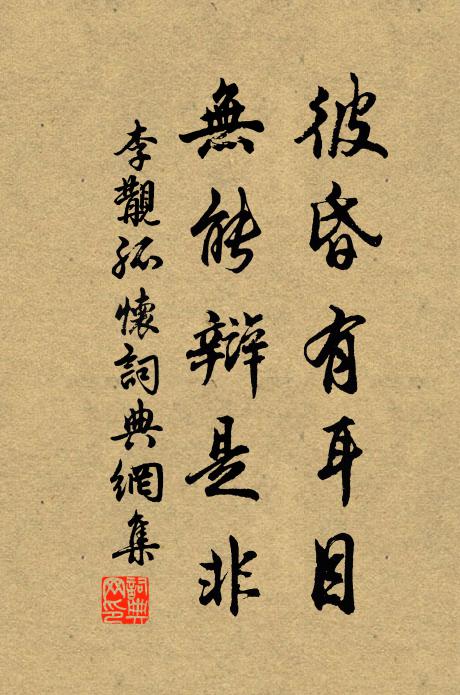 彼昏有耳目
無能辯是非
李觀孤懷詞典網集
詞典
网印